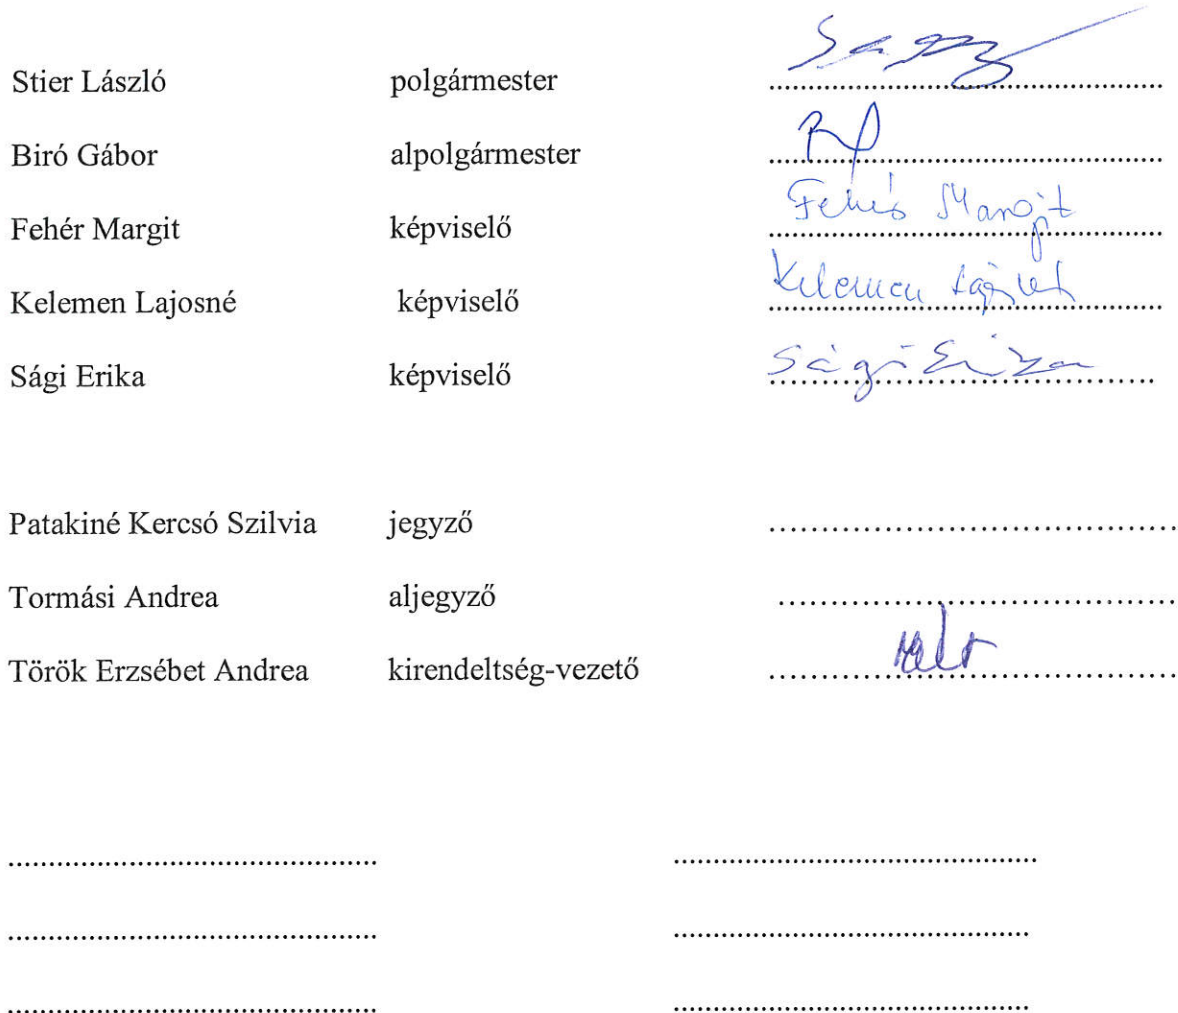 Stier László polgármester
Biró Gábor alpolgármester
Fehér Margit képviselő Fehér Margit
Kelemen Lajosné képviselő Kelemen Lajosné
Sági Erika képviselő Sági Erika
Patakiné Kercsó Szilvia jegyző
Tormási Andrea aljegyző
Török Erzsébet Andrea kirendeltség-vezető